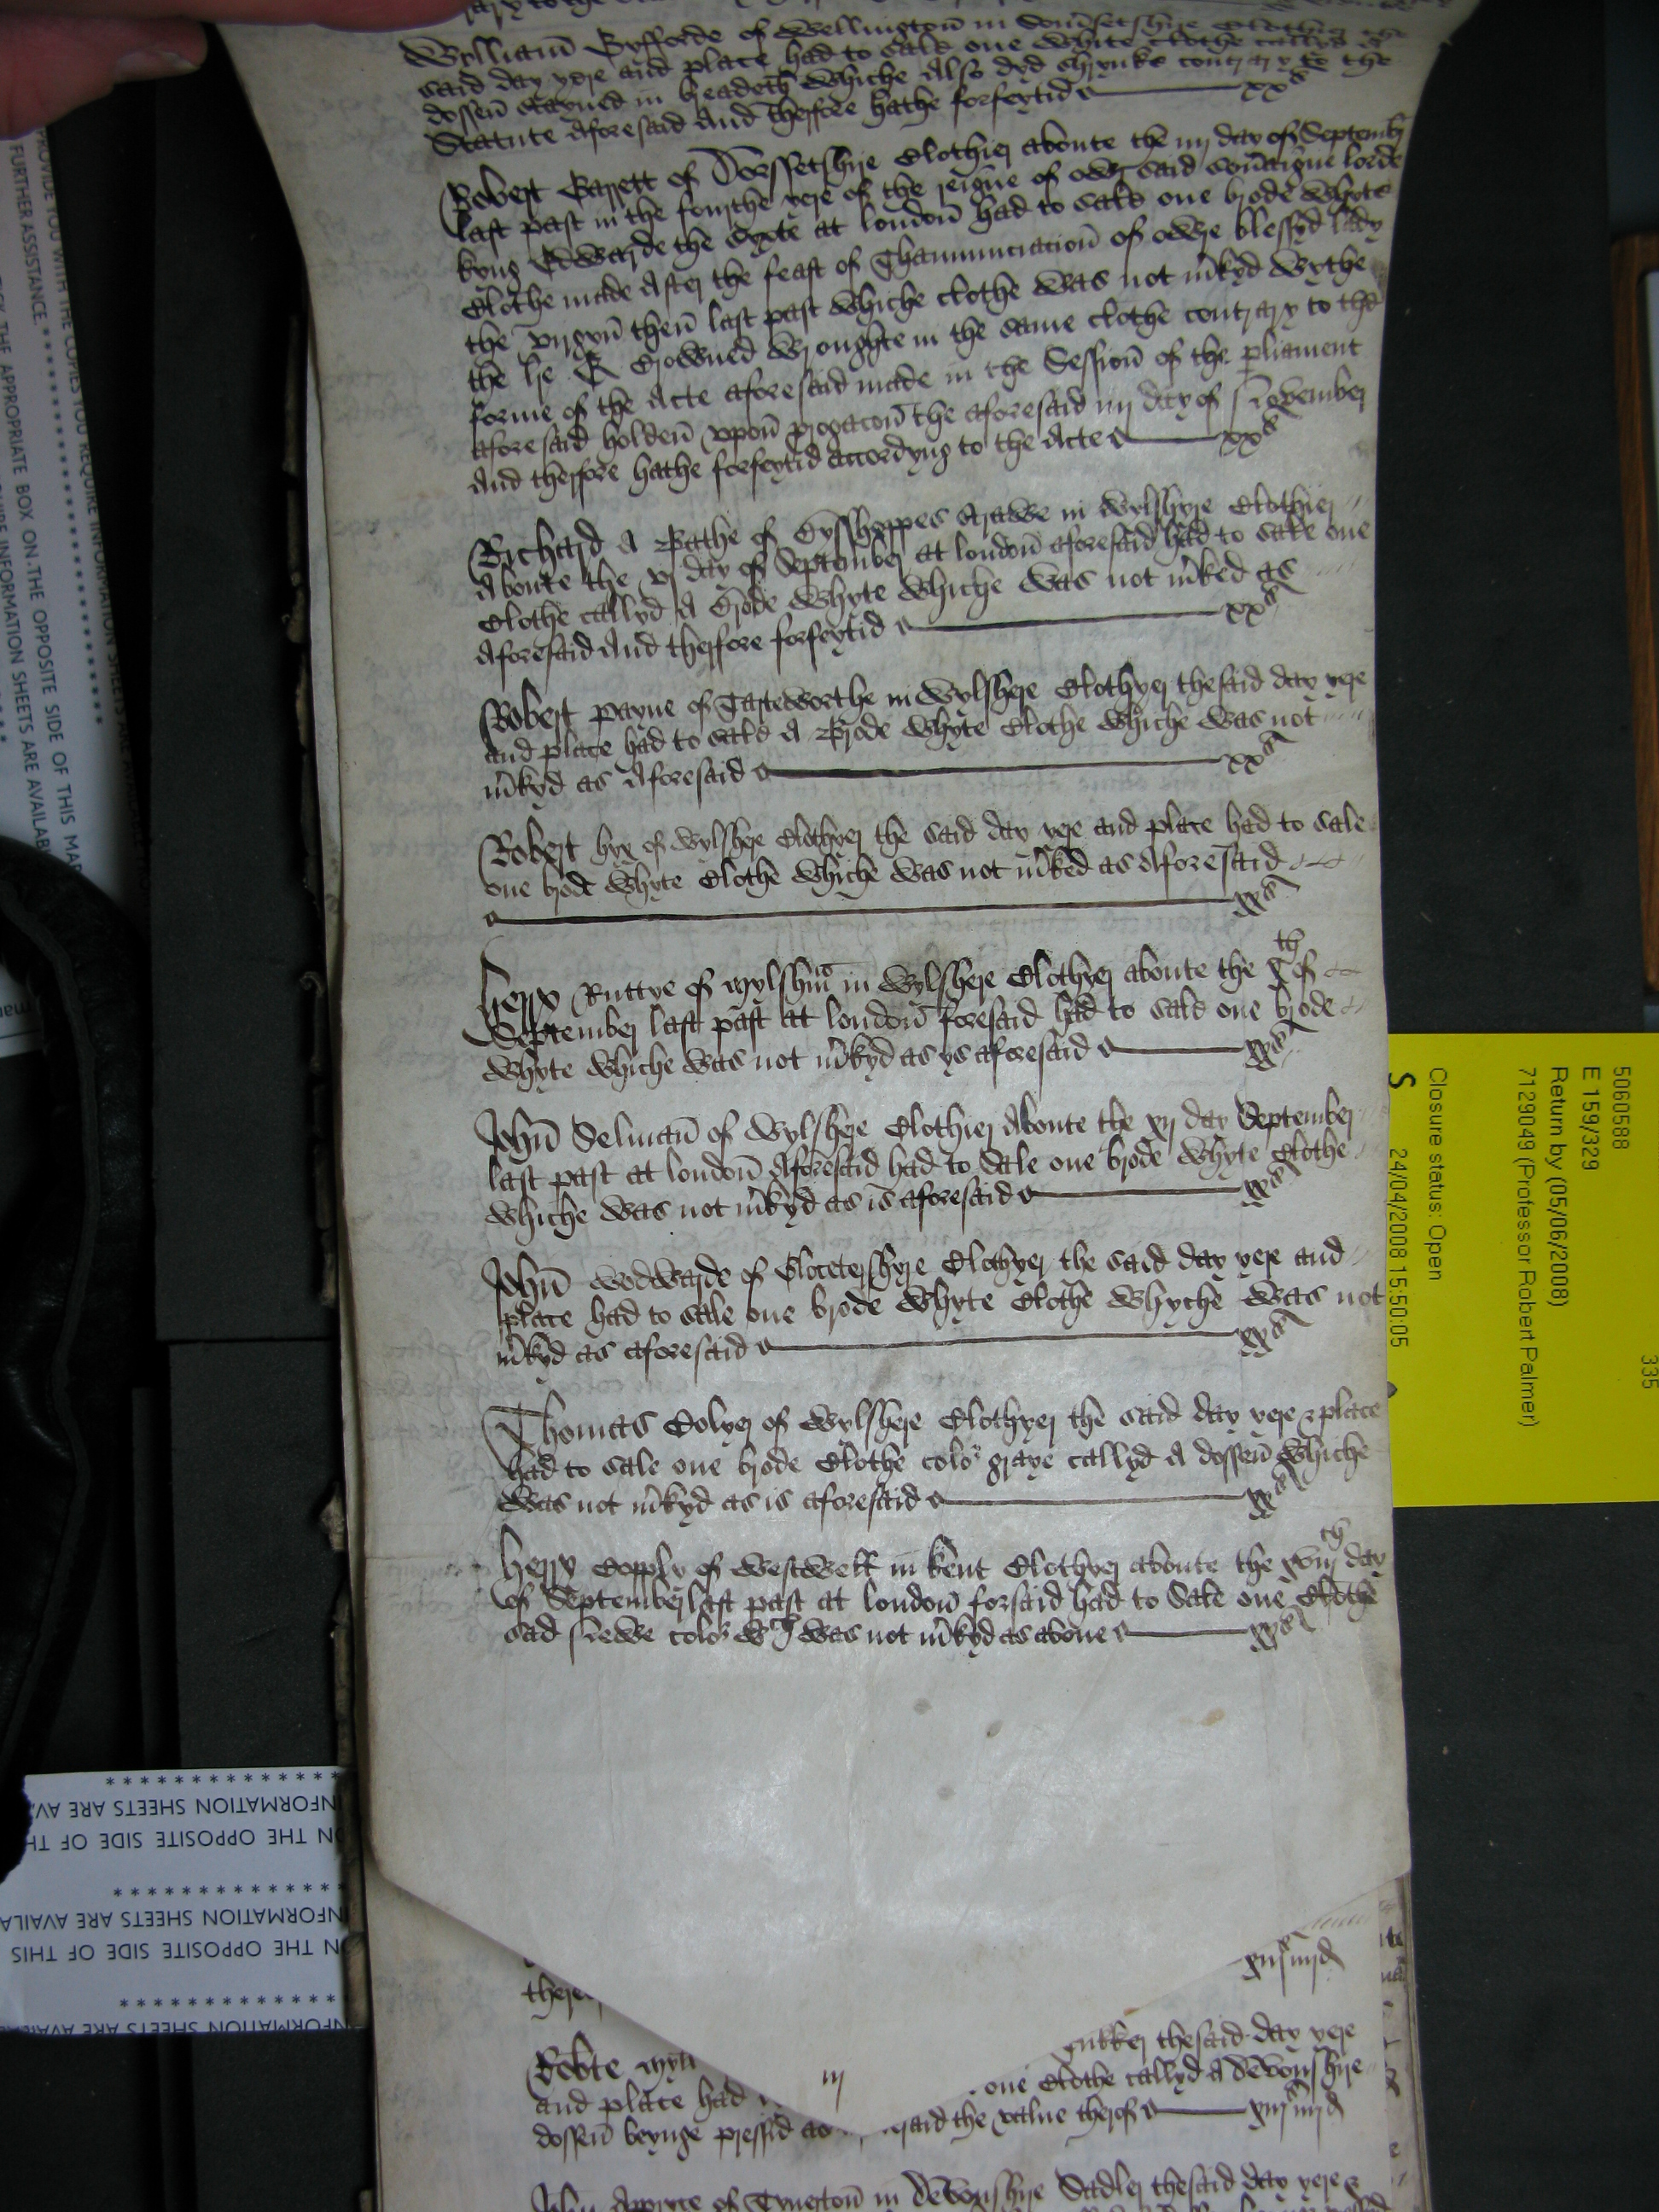 Wylliam̄ Byfforde of Wellingtoū in Som̄setshyre Clothier the
said day yere and place had to sale one white clothe callyd a
dosseū stayned in breadeth whiche also dyd shrynke contrary to the
Statute aforesaid And therffore hathe forfeytid xxs
Robert Barett of Dorssetshyre Clothier aboute the iiij day of Septemb
last past in the fourthe yere of the reigne of owr said sou̅aigne lorde
kyng Edwarde the Syxte at londoū had to sale one brode whyte
Clothe made after the feast of Thannunciatioū of owre blessyd lady
the virgyū theū last past whiche clothe was not m̄kyd wythe
the lre E Crowned wroughte in the same clothe contrary to the
forme of the Acte aforesaid made in the Sessioū of the pliament
aforesaid holdeū vpoū progacoū the aforesaid iiij day of November
And therffore hathe forfeytid accordyng to the Acte xxs
Richard A Bathe of Bysshoppes Strawe in Wylshyre Clothier
Aboute the vj day of September at londoū aforesaid had to sale one
Clothe callyd A Brode Whyte whiche was not m̄ked as
aforesaid And therffore forfeytid xxs
Robert payne of in Wylshere Clothyer thesaid day yere
and place had to sale A Brode Whyte Clothe whiche was not
m̄kyd as aforesaid xxs
Robert hyx of Wylshere Clothyer the said day yere and place had to sale
one brode whyte Clothe whiche was not m̄ked as aforesaid
xxs
Herry Ruttye of in Wylshere Clothyer aboute the xth of
September last past at londoū foresaid had to sale one brode
whyte whiche was not m̄kyd as ys aforesaid xxs
Johū Selmaū of Wylshere Clothier Aboute the xij day September
last past at londoū aforesaid had to sale one brode whyte Clothe
whiche was not m̄kyd as is aforesaid xxs
Johū wodwarde of Glocetershyre Clothyer the said day yere and
place had to sale one brode Whyte Clothe whyche was not
m̄kyd as aforesaid xxs
Thomas Colyer of Wylshere Clothyer the said day yere & place
had to sale one brode Clothe color graye callyd A dosseū whiche
was not m̄kyd as is aforesaid xxs
Herry Copply of Westwell in kent Clothyer aboute the xviijth day
of September last past at londoū forsaid had to Sale one Clothe
sad newe color wch was not m̄kyd as aboue xxs
xiijs iiijd
there
Robte thesaid day yere
and place had one Clothe callyd A devonshyre
dosseū beynge pressid as said the value therof xiijs iiijd
iij
Johū Appryce of Tyuertoū in devonshyre Sadler thesaid day yere &
5060588
335
E 159/329
Return by (05/06/2008)
7129049 (Professor Robert Palmer)
Closure status: Open
S 24/04/2008 15:50:05
PROVIDE YOU WITH THE COPIES YOU REQUIRE INFORMATION SHEETS ARE AVAILABLE
FURTHER ASSISTANCE.
TICK THE APPROPRIATE BOX ON THE OPPOSITE SIDE OF THIS
INFORMATION SHEETS ARE AVAILAB
INFORMATION SHEETS ARE AV
ON THE OPPOSITE SIDE OF TH
INFORMATION SHEETS ARE AVAILA
N THE OPPOSITE SIDE OF THIS
INFORMATION SHEETS ARE